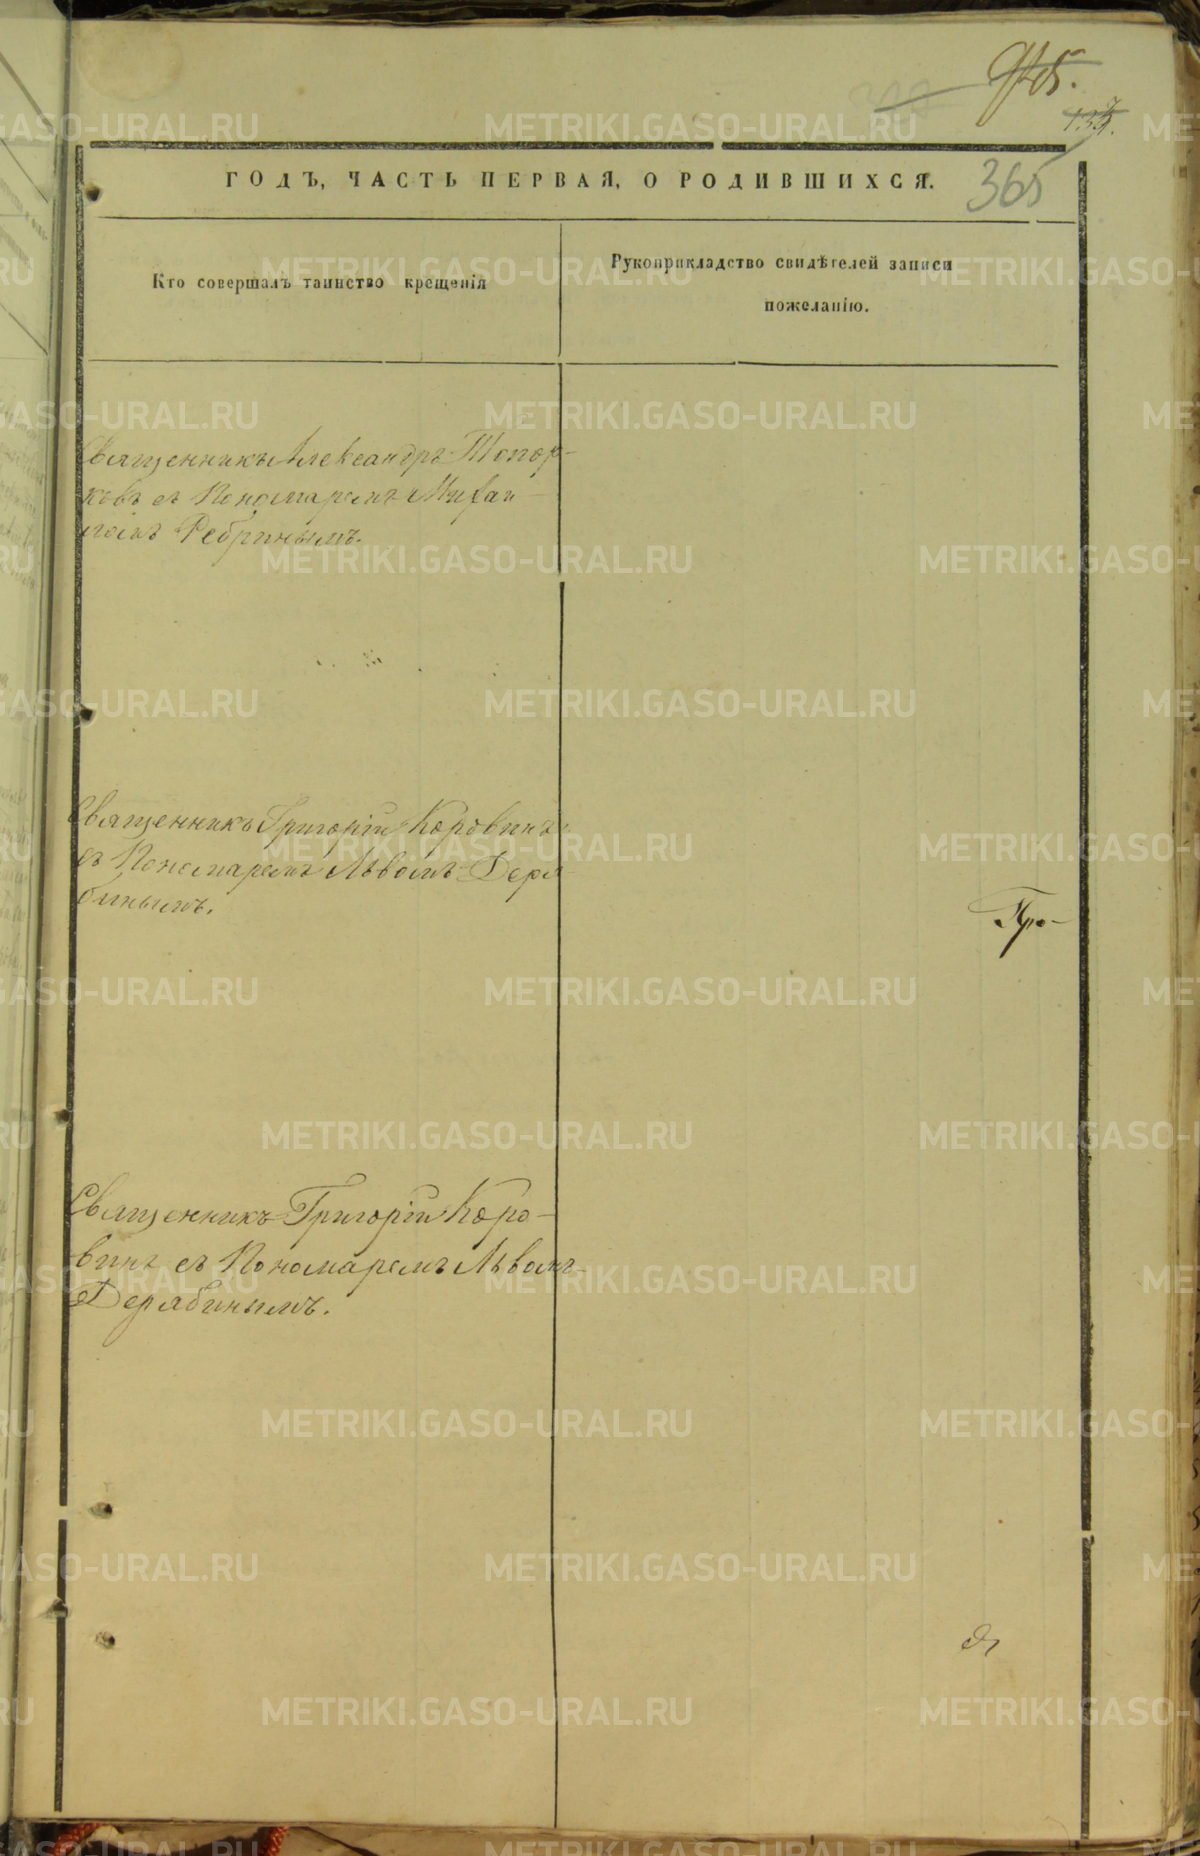 365
ГОДЪ, ЧАСТЬ ПЕРВАЯ, О РОДИВШИХСЯ.
Кто совершалъ таинство крещенія
Рукоприкладство свидѣтелей записи
пожеланію.
Священникъ Александръ Топор-
ковъ съ Пономаремъ Михаи-
ломъ Ребринымъ.
Священникъ Григорій Коровинъ
съ Пономаремъ Львомъ Деря-
бинымъ.
Про-
Священникъ Григорій Коро-
винъ съ Пономаремъ Львомъ
Дерябинымъ.
METRIKI.GASO-URAL.RU